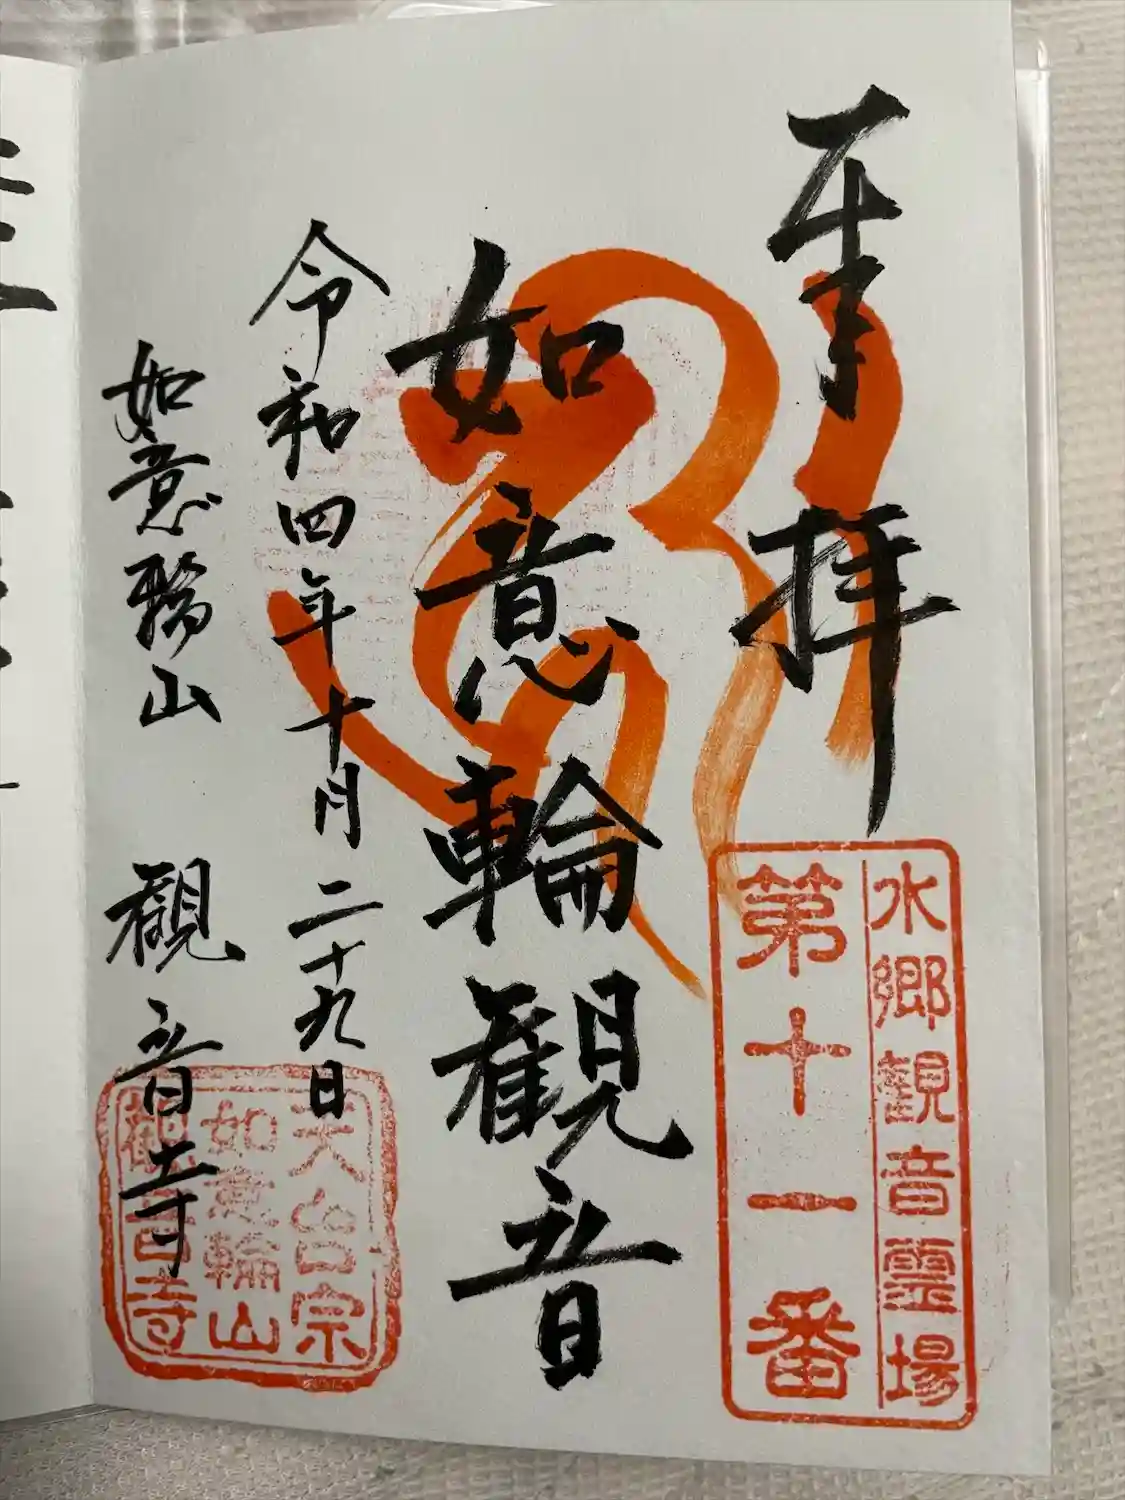 奉拝
水郷観音霊場
第十一番
如意輪觀音
令和四年十月二十九日
如意輪山 觀音寺
天台宗
如意輪山
觀音寺